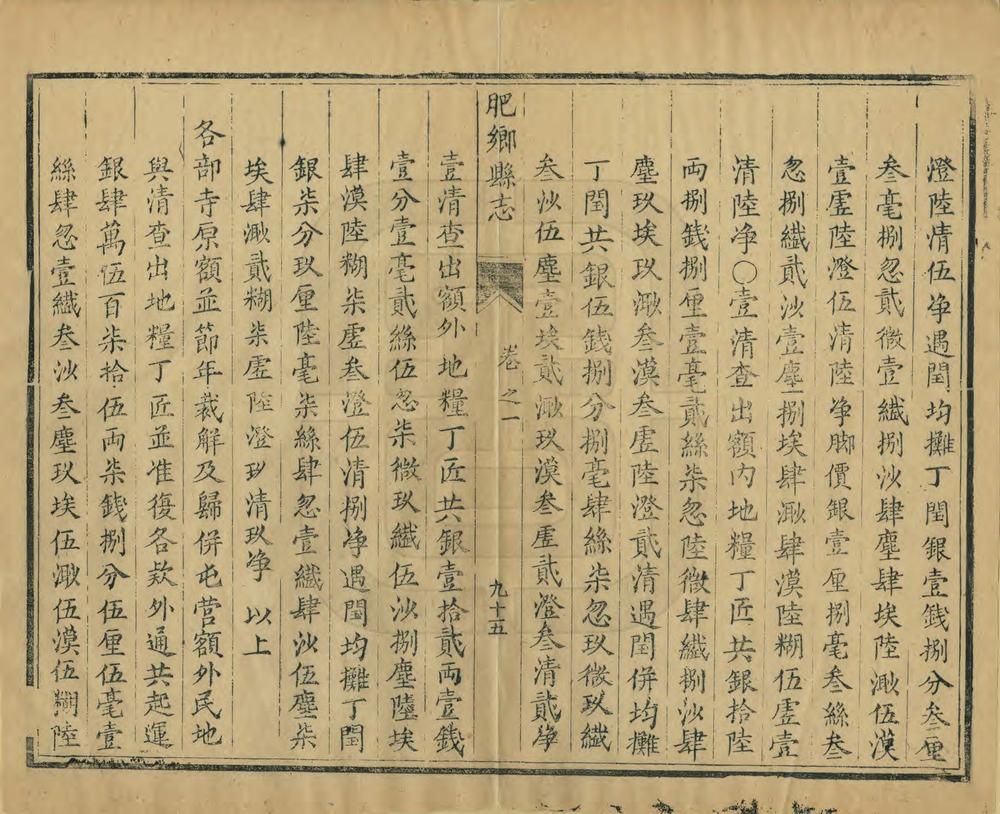 澄陸清伍净遇閏均攤丁閏銀壹銭捌分叁厘
叁毫捌忽貳微壹纎捌沙肆塵肆埃陸渺伍漠
壹虗陸澄伍清陸净脚價銀壹厘捌毫叁絲叁
忽捌纎貳沙壹塵捌埃肆渺肆漠陸糊伍虗壹
清陸净〇壹清查出額内地糧丁匠共銀拾陸
両捌銭捌厘壹毫貳絲柒忽陸微肆纎捌沙肆
塵玖埃玖渺叁漠叁虗陸澄貳清遇閏併均攤
丁閏共銀伍銭捌分捌毫肆絲柒忽玖微玖纎
叁沙伍塵壹埃貳渺玖漠叁虗貳澄叁清貳净
肥鄉縣志
卷之一
九十五
壹清查出額外地糧丁匠共銀壹拾貳両壹銭
壹分壹毫貳絲伍忽柒微玖纎伍沙捌塵陸埃
肆漠陸糊柒虗叁澄伍清捌净遇閏均攤丁閏
銀柒分玖厘陸毫柒絲肆忽壹纎肆沙伍塵柒
埃肆渺貳糊柒虗陸澄玖清玖净　以上
各部寺原額並節年裁觧及歸併屯营額外民地
與清查出地糧丁匠並准復各欵外通共起運
銀肆萬伍百柒拾伍両柒銭捌分伍厘伍毫壹
絲肆忽壹纎叁沙叁塵玖埃伍渺伍漠伍糊陸